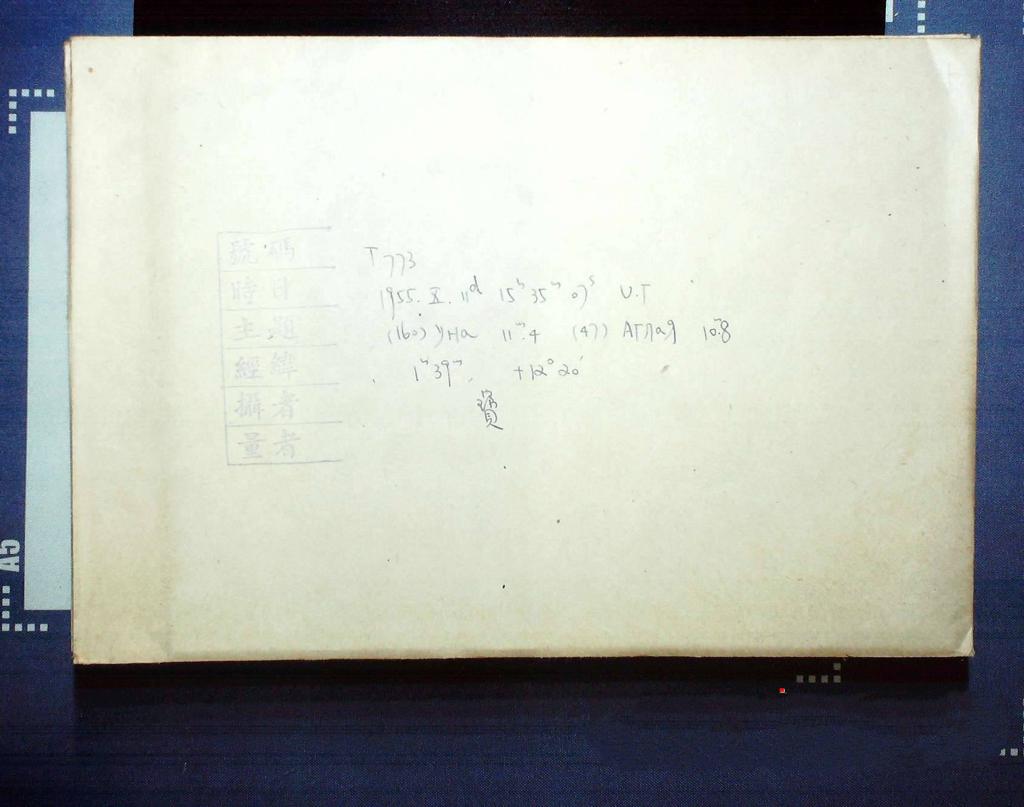 號碼 T 773
時日 1955. X. 11ᵈ 15ʰ 35ᵐ 07ˢ U.T
主題 (160) УНа 11ᵐ.4 (47) АГЛаЯ 10ᵐ.8
經緯 1ʰ 39ᵐ. +12° 20′
攝者
量者
A5